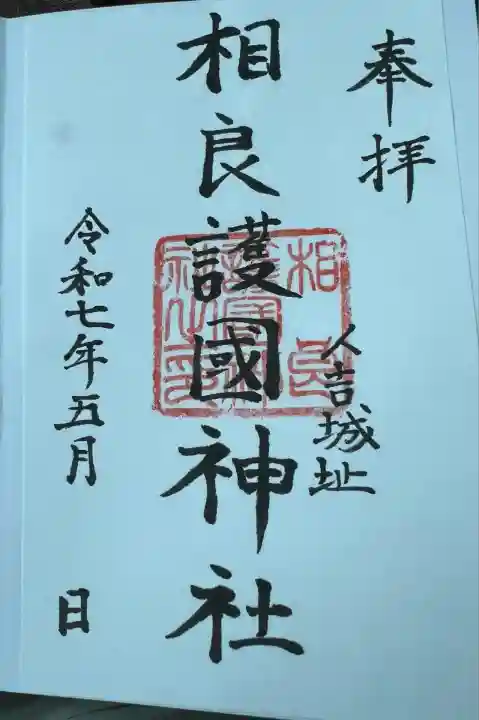 奉拝
人吉城址
相良護國神社
令和七年五月 日
相良
護國神
社之印